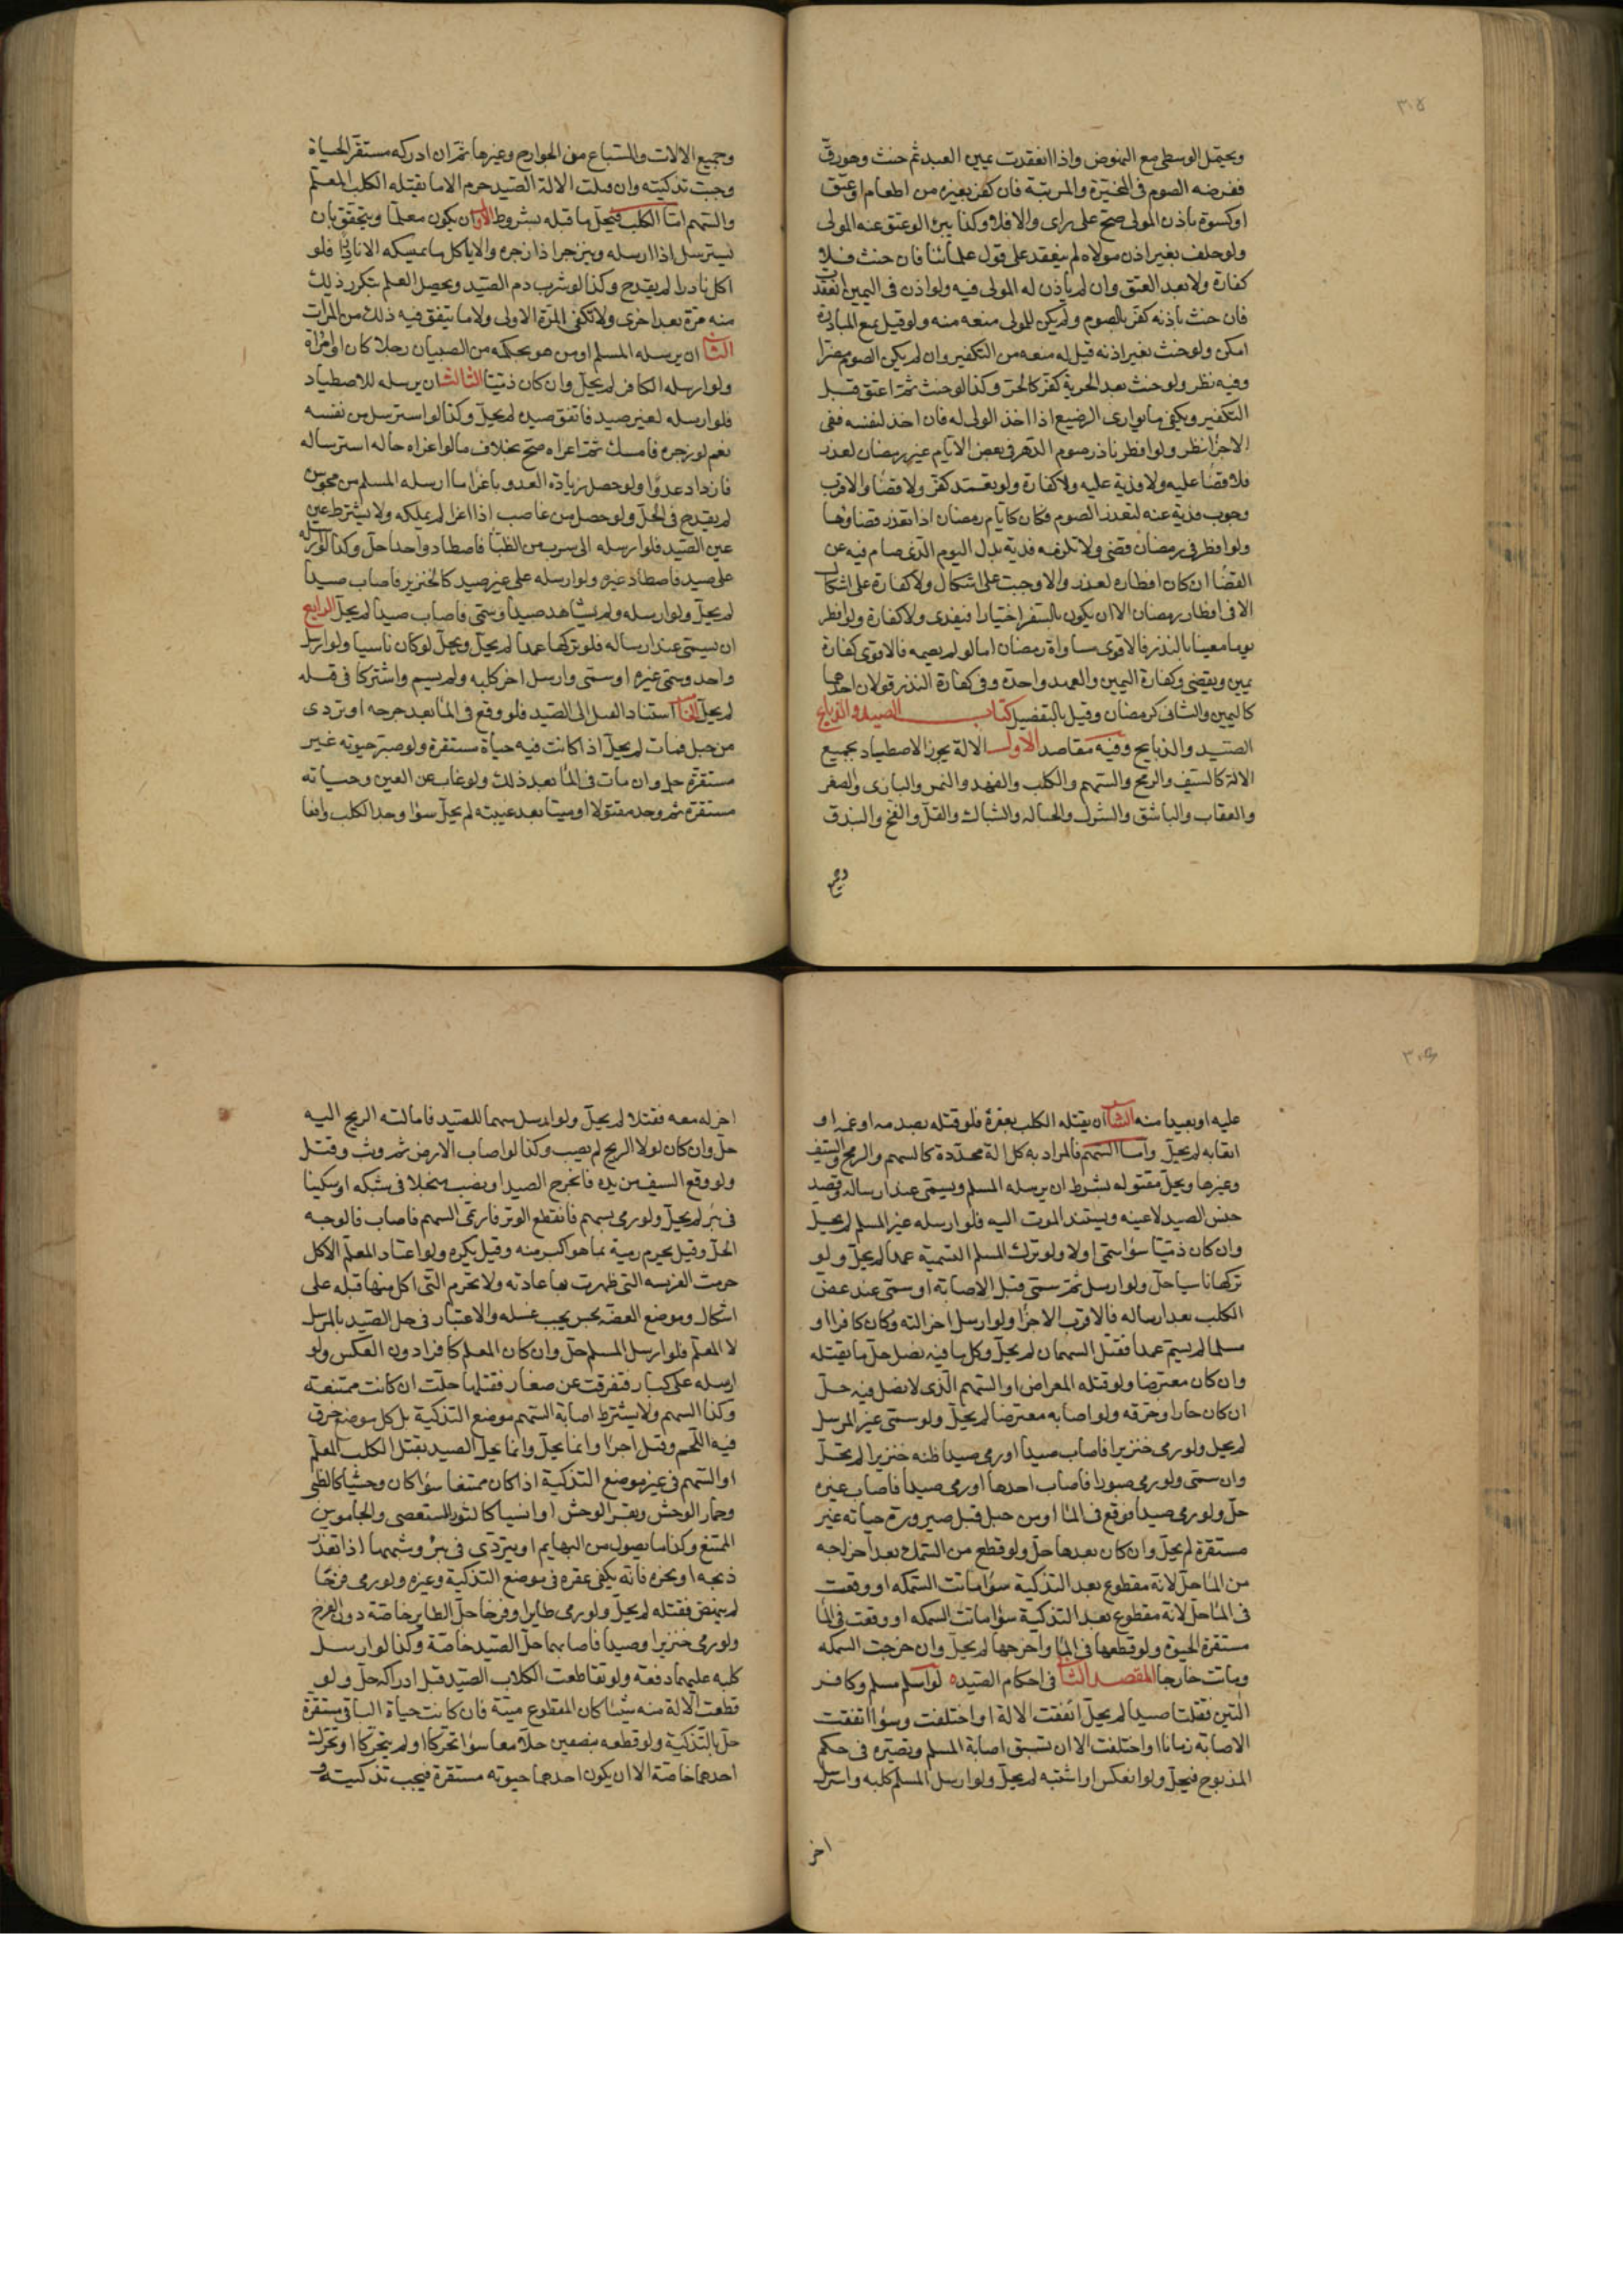 ٣٠٥
ويحتمل الوسطى مع النهوض واذا انعقدت يمين العبد ثم حنث وهو رق
ففرضه الصوم فى المخيرة والمرتبة فان كفر بغيره من اطعام او عتق
او كسوة باذن المولى صح على راى والا فلا وكذا يبرئ لو عتق عنه المولى
ولو حلف بغير اذن مولاه لم ينعقد على قول علمائنا فان حنث فلا
كفارة ولا بعد العتق وان لم ياذن له المولى فيه ولو اذن فى اليمين انعقد
فان حنث باذنه كفر بالصوم ولم يكن للمولى منعه منه ولو قيل بمنع المبادرة
امكن ولو حنث بغير اذنه قيل له منعه من التكفير وان لم يكن الصوم مضرا
وفيه نظر ولو حنث بعد الحرية كفر كالحر وكذا لو حنث ثم اعتق قبل
التكفير ويكفى ما يوارى الرضيع اذا اخذ الولى له فان اخذ لنفسه ففى
الاجزا نظر ولو افطر ناذر صوم الدهر فى بعض الايام غير رمضان لعذر
فلا قضا عليه ولا فدية عليه ولا كفارة ولو تعمد كفر ولا قضا والاقرب
وجوب فدية عنه لتعذر الصوم فكان كايام رمضان اذا تعذر قضاؤها
ولو افطر فى رمضان قضى ولا تلزمه فدية بدل اليوم الذى صام فيه عن
القضا ان كان افطاره لعذر والا وجبت على اشكال ولا كفارة على اشكال
الا فى افطار رمضان الا ان يكون بالسفر اختيارا فيفدى ولا كفارة ولو افطر
يوما معينا بالنذر فالاقوى مساواة رمضان اما لو لم يصمه فالاقوى كفارة
يمين ويقضى وكفارة اليمين والعهد واحدة وفى كفارة النذر قولان احدهما
كاليمين والثانى كرمضان وقيل بالتفصيل كتاب الصيد والذبايح
الصيد والذبايح وفيه مقاصد الاول الالة يجوز الاصطياد بجميع
الالة كالسيف والرمح والسهم والكلب والفهد والنمر والبازى والصقر
والعقاب والباشق والشرك والحبالة والشباك والقتل والفخ والبندق
وجميع
وجميع الالات والسباع من الجوارح وغيرها ثم ان ادركه مستقر الحياة
وجبت تذكيته وان قتلت الالة الصيد حرم الا ما يقتله الكلب المعلم
والسهم اما الكلب فيحل ما قتله بشروط الاول ان يكون معلما ويتحقق بان
يسترسل اذا ارسله وينزجر اذا زجره والا ياكل ما يمسكه الا نادرا فلو
اكل نادرا لم يقدح وكذا لو شرب دم الصيد ويحصل العلم بتكرر ذلك
منه مرة بعد اخرى ولا تكفى المرة الاولى ولا ما يتفق فيه ذلك من المرات
الثانى ان يرسله المسلم او من هو بحكمه من الصبيان رجلا كان او امراة
ولو ارسله الكافر لم يحل وان كان ذميا الثالث ان يرسله للاصطياد
فلو ارسله لغير صيد فاتفق صيده لم يحل وكذا لو استرسل من نفسه
نعم لو زجره فامسك ثم اغراه صح بخلاف ما لو اغراه حاله استرساله
فازداد عدوا ولو حصل زيادة العدو باغراء ما ارسله المسلم من مجوس
لم يقدح فى الحل ولو حصل من غاصب اذا اغرا لم يملكه ولا يشترط عين
عين الصيد فلو ارسله الى سرب من الظبا فاصطاد واحدا حل وكذا لو ارسله
على صيد فاصطاد غيره ولو ارسله على غير صيد كالخنزير فاصاب صيدا
لم يحل ولو ارسله ولم يشاهد صيدا وسمى فاصاب صيدا لم يحل الرابع
ان يسمى عند ارساله فلو تركها عمدا لم يحل ويحل لو كان ناسيا ولو ارسل
واحد وسمى غيره او سمى وارسل اخر كلبه ولم يسم واشتركا فى قتله
لم يحل الخامس استناد القتل الى الصيد فلو وقع فى الما بعد جرحه او تردى
من جبل فمات لم يحل اذا كانت فيه حياة مستقرة ولو صير حيوته غير
مستقرة حل وان مات فى الما بعد ذلك ولو غاب عن العين وحياته
مستقرة ثم وجد مقتولا او ميتا بعد غيبته لم يحل سوا وجد الكلب واقفا
عليه او بعيدا منه السادس ان يقتله الكلب بعقره فلو قتله بصدمه او غمه او
اتعابه لم يحل واما السهم فالمراد به كل الة محددة كالسهم والرمح والسيف
وغيرها ويحل مقتوله بشرط ان يرسله المسلم ويسمى عند ارساله وقصد
جنس الصيد لا عينه ويستند الموت اليه فلو ارسله غير المسلم لم يحل
وان كان ذميا سوا سمى او لا ولو ترك المسلم التسمية عمدا لم يحل ولو
تركها ناسيا حل ولو ارسل ثم سمى قبل الاصابة او سمى عند عض
الكلب بعد ارساله فالاقرب الاجزا ولو ارسل اخر الته وكان كافرا او
مسلما لم يسم عمدا فقتل السهمان لم يحل وكل ما فيه نصل حل ما يقتله
وان كان معترضا ولو قتله المعراض او السهم الذى لا نصل فيه حل
ان كان حادا وخرقه ولو اصابه معترضا لم يحل ولو سمى غير المرسل
لم يحل ولو رمى خنزيرا فاصاب صيدا او رمى صيدا ظنه خنزيرا لم يحل
وان سمى ولو رمى صيودا فاصاب احدها او رمى صيدا فاصاب غيره
حل ولو رمى صيدا فوقع فى الما او من جبل قبل صيرورة حياته غير
مستقرة لم يحل وان كان بعدها حل ولو قطع من السمك بعد اخراجه
من الما حل لانه مقطوع بعد التذكية سوا ماتت السمكه او وقعت
فى الما حل لانه مقطوع بعد التذكية سوا ماتت السمكه او وقعت فى الما
مستقرة الحيوة ولو قطعها فى الما واخرجها لم يحل وان خرجت السمكه
وماتت خارجا المقصد الثانى فى احكام الصيد لو ارسل مسلم وكافر
التين فقتلتا صيدا لم يحل اتفقت الالة او اختلفت وسوا اتفقت
الاصابة زمانا او اختلفت الا ان تسبق اصابة المسلم وتصيره فى حكم
المذبوح فيحل ولو انعكس او اشتبه لم يحل ولو ارسل المسلم كلبه واسترسل
اخر
اخر له معه فقتلا لم يحل ولو ارسل سهما للصيد فامالته الريح اليه
حل وان كان لولا الريح لم يصب وكذا لو اصاب الارض ثم وثب وقتل
ولو وقع السيف من يده فانجرح الصيد او نصب منجلا فى شبكه او سكينا
فى بئر لم يحل ولو رمى بسهم فانقطع الوتر فارتمى السهم فاصاب فالوجه
الحل وقيل يحرم رمية بما هو اكبر منه وقيل يكره ولو اعتاد المعلم الاكل
حرمت الفريسه التى ظهرت بها عادته ولا تحرم التى اكل منها قبله على
اشكال وموضع العضه نجس يجب غسله والاعتبار فى حل الصيد بالمرسل
لا المعلم فلو ارسل المسلم حل وان كان المعلم كافرا دون العكس ولو
ارسله على كبار فتفرقت عن صغار فقتلها حلت ان كانت ممتنعة
وكذا السهم ولا يشترط اصابة السهم موضع التذكية بل كل موضع خرق
فيه اللحم وقتل اجزا وانما يحل وانما يحل الصيد بقتل الكلب المعلم
او السهم فى غير موضع التذكية اذا كان ممتنعا سوا كان وحشيا كالظبى
وحمار الوحش وبقر الوحش او انسيا كالثور المستعصى والجاموس
الممتنع وكذا ما يصول من البهايم او يتردى فى بئر وشبهها اذا تعذر
ذبحه او نحره فانه يكفى عقره فى موضع التذكية وغيره ولو رمى فرخا
لم ينهض فقتله لم يحل ولو رمى طايرا وفرخا حل الطاير خاصة دون الفرخ
ولو رمى خنزيرا وصيدا فاصابهما حل الصيد خاصة وكذا لو ارسل
كلبه عليهما دفعة ولو تقاطعت الكلاب الصيد قبل ادراكه حل ولو
قطعت الالة منه شيئا كان المقطوع ميتة فان كانت حياة الباقى مستقرة
حل بالتذكية ولو قطعه بنصفين حلا معا سوا تحركا او لم يتحركا او تحرك
احدهما خاصة الا ان يكون احدهما حيوته مستقرة فيجب تذكيته و